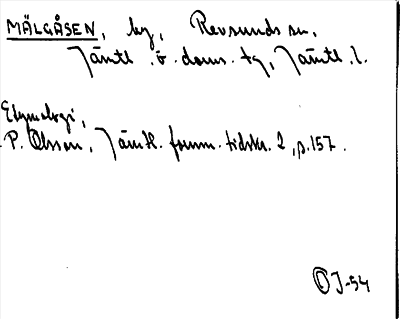 MÄLGÅSEN, by, Revsunds sn,
Jämtl. ö. doms. tg, Jämtl. l.
Etymologi,
P. Olsson, Jämtl. fornm. tidskr. 2, p. 157.
OJ-54